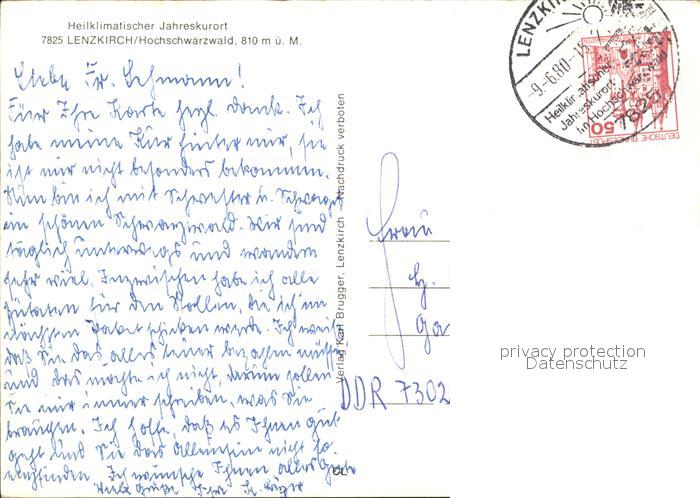 Heilklimatischer Jahreskurort
7825 LENZKIRCH/Hochschwarzwald, 810 m ü. M.
Liebe Fr. Lehmann!
Für Ihre Karte herzl. Dank. Ich
habe meine Kur hinter mir, sie
ist mir nicht besonders bekommen.
Nun bin ich mit Schwester u. Schwager
im schönen Schwarzwald. Wir sind
täglich unterwegs und wandern
sehr viel. Inzwischen habe ich alle
Zutaten für den Stollen, die ich im
nächsten Paket schicken werde. Ich weiß
daß Sie das alles teuer bezahlen müssen
und das möchte ich nicht, darum sollen
Sie mir immer schreiben, was Sie
brauchen. Ich hoffe, daß es Ihnen gut
geht und Sie das Alleinsein nicht so
empfinden. Ich wünsche Ihnen alles Gute
Viele Grüße Ihre
Verlag Karl Brugger, Lenzkirch Nachdruck verboten
CL
Frau
Ga
DDR 7302
LENZKIRCH
-9.-6.80-15
Heilklimatischer
Jahreskurort
im Hochschwarzwald
7825
50
DEUTSCHE BUNDESPOST
privacy protection
Datenschutz